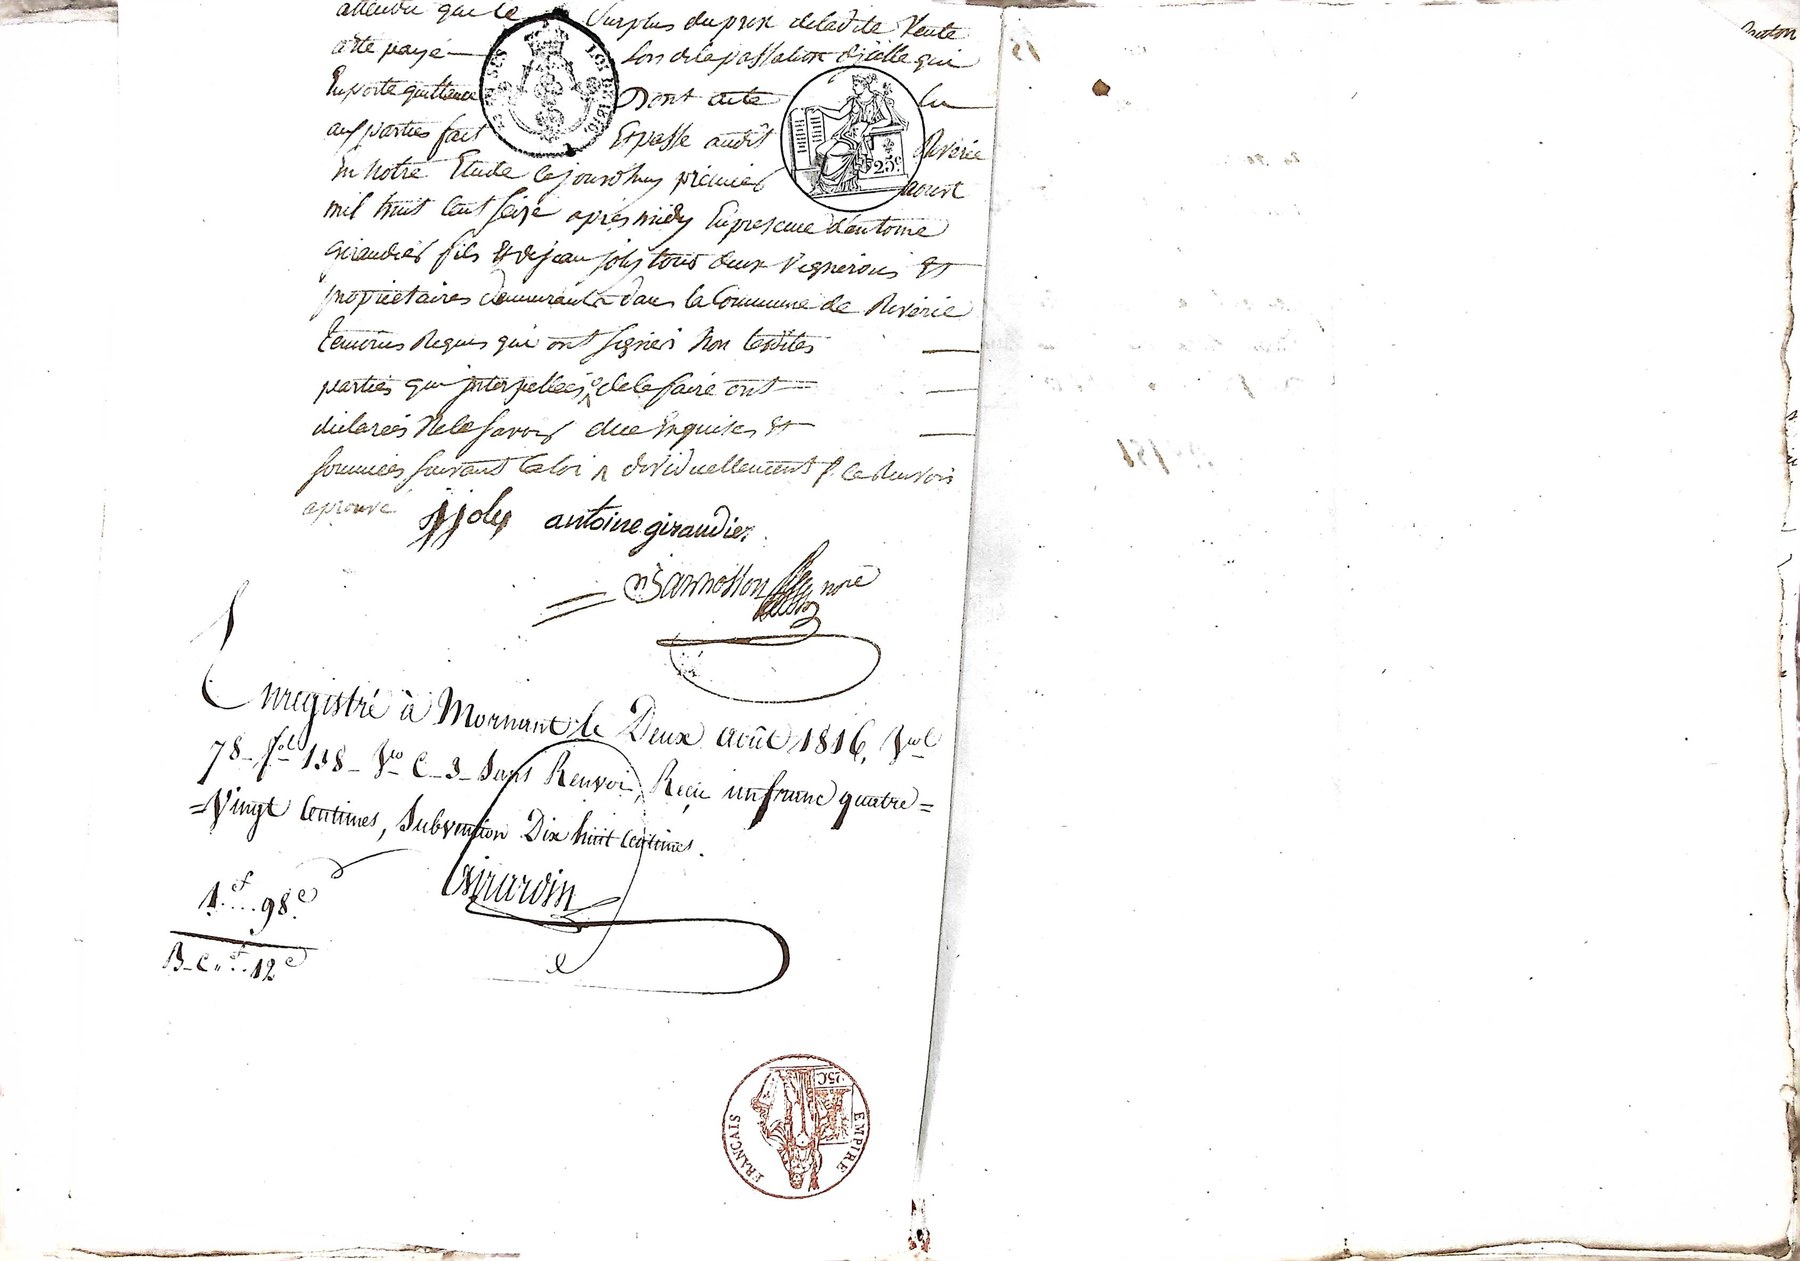 attendu que le Surplus du prix de ladite Vente
a été payé lors de la passation d'icelle qui
Emporte quittance Dont acte lu
aux parties fait Et passé audit Riverie
En notre Etude Cejourd'huy premier aoust
mil huit Cent Seize après midy En presence d'antoine
giraudier fils Et de jean joly tous deux Vignerons Et
propriétaires demeurant dans la Commune de Riverie
temoins Requis qui ont signés Non lesdites
parties qui jnterpellées de le faire ont
déclarées Ne le Savoir de ce Enquises Et
sommées suivant la loi individuellement le Renvoi
aprouvé
jjoly antoine giraudier
noré
Enregistré à Mornant le Deux août 1816, Vol
78 fol 138 Vo C 3 Sans Renvoi, Reçu un franc quatre=
=Vingt Centimes, Subvention Dix huit Centimes.
Girardin
1f..98c
B_C..f..12c
25c
LOI DE 1816
EMPIRE FRANCAIS
25C